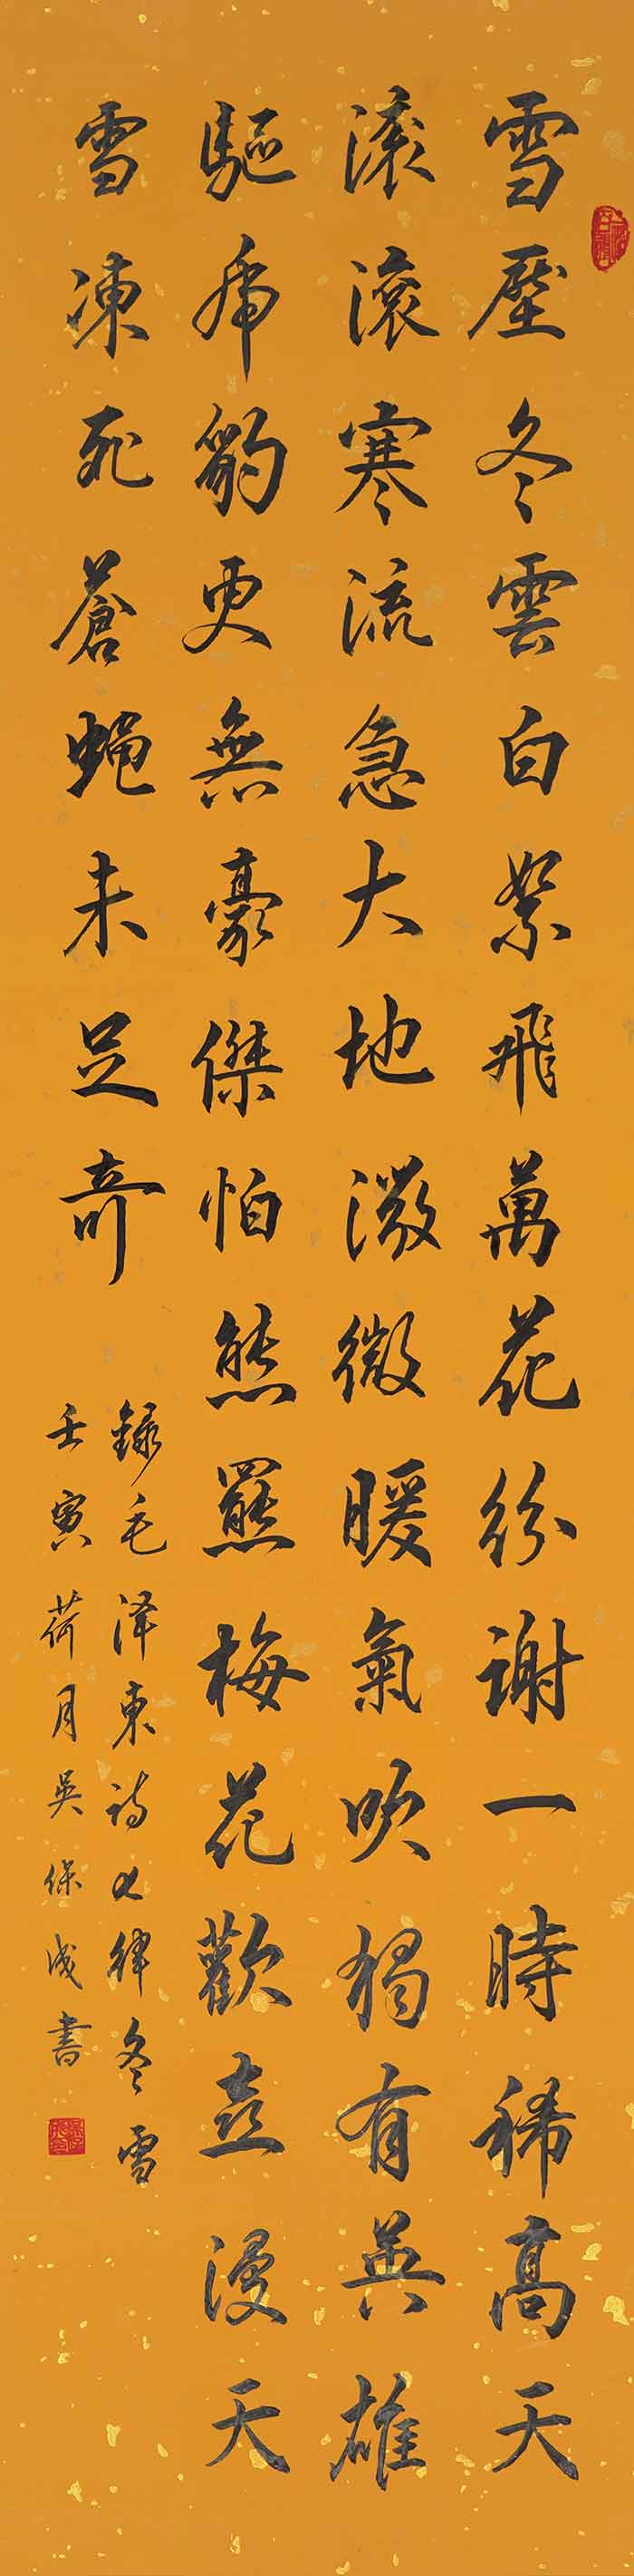 雪壓冬雲白絮飛萬花紛謝一時稀高天
滚滚寒流急大地微微暖氣吹獨有英雄
驅虎豹更無豪傑怕熊羆梅花歡喜漫天
雪凍死蒼蠅未足奇
録毛泽東詩七律冬雪
壬寅荷月吳保成書